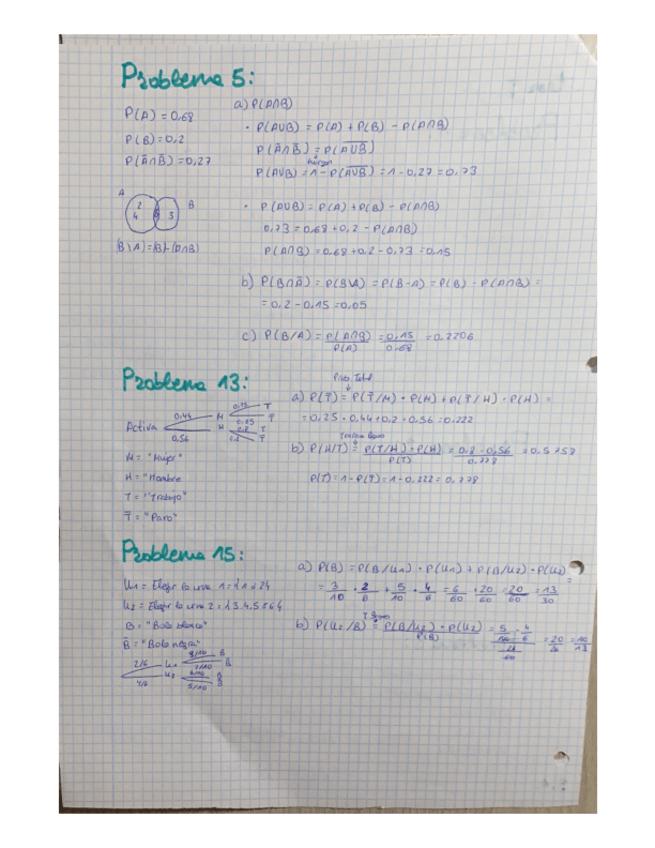 Problema 5:
P(A) = 0,68
P(B) = 0,2
P(Ā∩B̄) = 0,27
A
B
2
4
3
a) P(A∩B)
• P(A∪B) = P(A) + P(B) - P(A∩B)
P(Ā∩B̄) = P(A̅∪̅B̅)
P(A∪B) = 1 - P(A̅∪̅B̅) = 1 - 0,27 = 0,73
• P(A∪B) = P(A) + P(B) - P(A∩B)
0,73 = 0,68 + 0,2 - P(A∩B)
P(A∩B) = 0,68 + 0,2 - 0,73 = 0,15
b) P(B∩Ā) = P(B\A) = P(B-A) = P(B) - P(A∩B) =
= 0,2 - 0,15 = 0,05
c) P(B/A) = P(A∩B)/P(A) = 0,15/0,68 = 0,2206
Problema 13:
Activa
0,44
M
T
T̄
0,56
H
T
T̄
M = "Mujer"
H = "Hombre
T = "Trabajo"
T̄ = "Paro"
Prob. Total
a) P(T̄) = P(T̄/M) · P(M) + P(T̄/H) · P(H) =
= 0,25 · 0,44 + 0,2 · 0,56 = 0,222
b) P(H/T) = P(T/H) · P(H)/P(T) = 0,8 · 0,56/0,778 = 0,5758
P(T) = 1 - P(T̄) = 1 - 0,222 = 0,778
Problema 15:
U1 = Elegir la urna 1 =
U2 = Elegir la urna 2 =
B = "Bola blanca"
B̄ = "Bola negra"
2/6
U1
3/10
B
7/10
B̄
4/6
U2
B
5/10
B̄
a) P(B) = P(B/U1) · P(U1) + P(B/U2) · P(U2) =
= 3/10 · 2/6 + 5/10 · 4/6 = 6/60 + 20/60 =
= 13/30
b) P(U2/B) = P(B/U2) · P(U2)/P(B) =